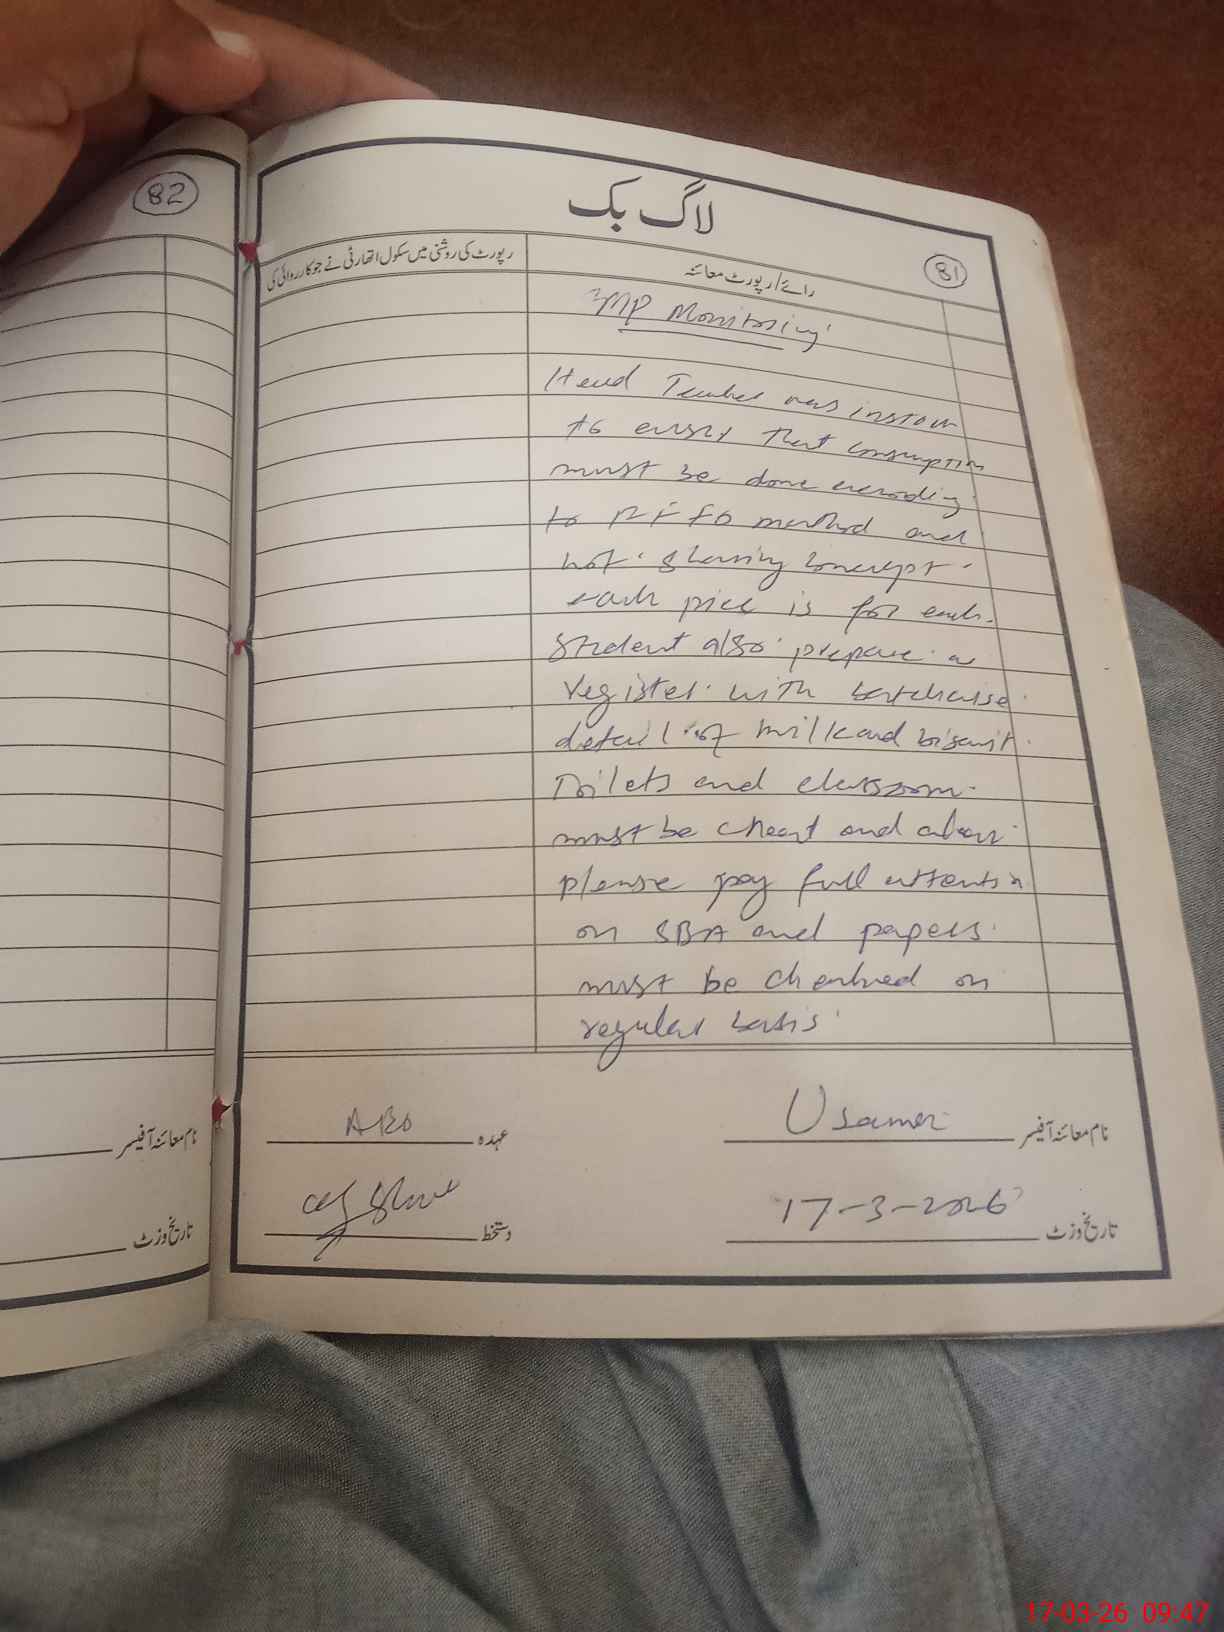 82
لاگ بک
81
رائے/رپورٹ معائنہ
رپورٹ کی روشنی میں سکول اتھارٹی نے جو کارروائی کی
SMP Monitoring
Head Teacher was
to that consumption
must be done
to FIFO method and
not sharing concept.
each is for each
student also prepare a
register with batchwise
detail of milk and biscuit.
Toilets and classroom
must be and
please pay full attention
on SBA and papers
must be on
regular basis
نام معائنہ آفیسر
Usama
عہدہ
AEO
تاریخ وزٹ
17-3-2026
دستخط
نام معائنہ آفیسر
تاریخ وزٹ
17-03-26 09:47